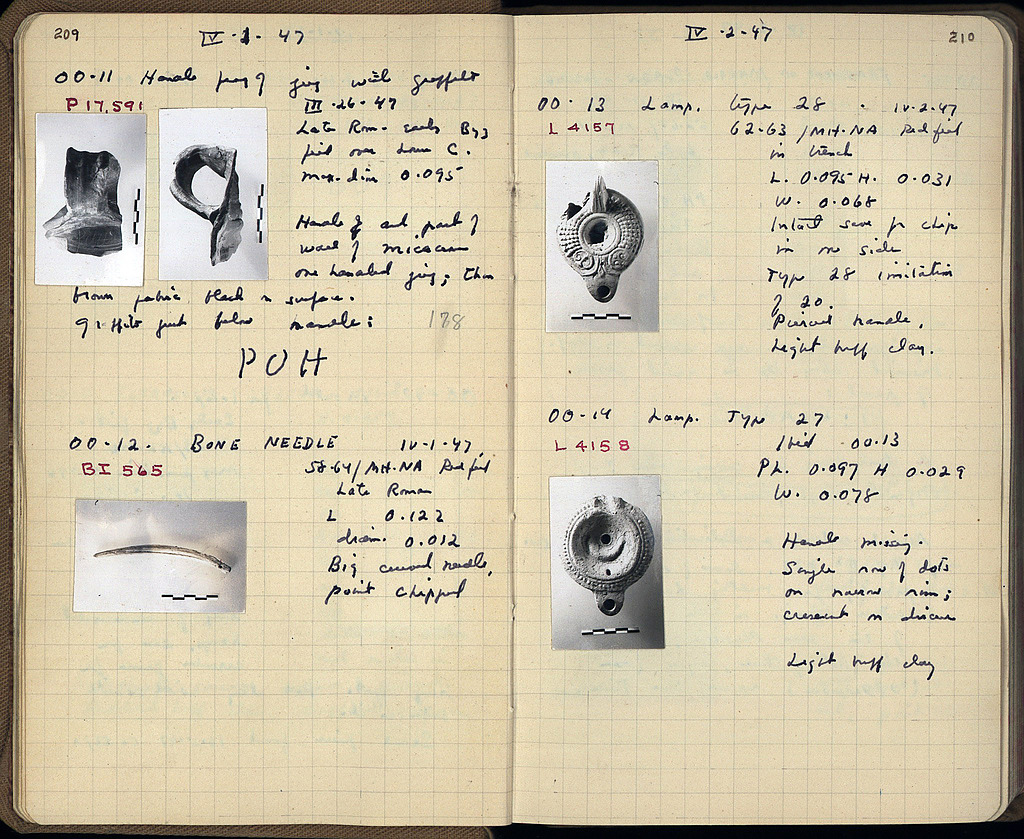 209
IV · 1 · 47
00·11 Handle frag of jug with graffito
P 17,591
III · 26 · 47
Late Rom. early Byz
fill over
max. dim 0.095
Handle & part of
wall of micaceous
one handled jug; thin
brown fabric black on surface.
Graffito just below handle:
178
POH
00·12. BONE NEEDLE IV·1·47
BI 565
58-64/MH-NA Red fill
Late Roman
L 0.122
diam. 0.012
Big curved needle,
point chipped
210
IV · 2 · 47
00·13 Lamp. Type 28 · IV·2·47
L 4157
62-63/MH-NA Red fill
in trench
L. 0.095 H. 0.031
W. 0.068
Intact save for chip
in one side
Type 28 imitation
of 20.
Pierced handle.
Light buff clay.
00·14 Lamp. Type 27
L 4158
Ibid 00·13
PL. 0.097 H 0.029
W. 0.078
Handle missing.
Single row of dots
on narrow rim;
crescent on discus
Light buff clay